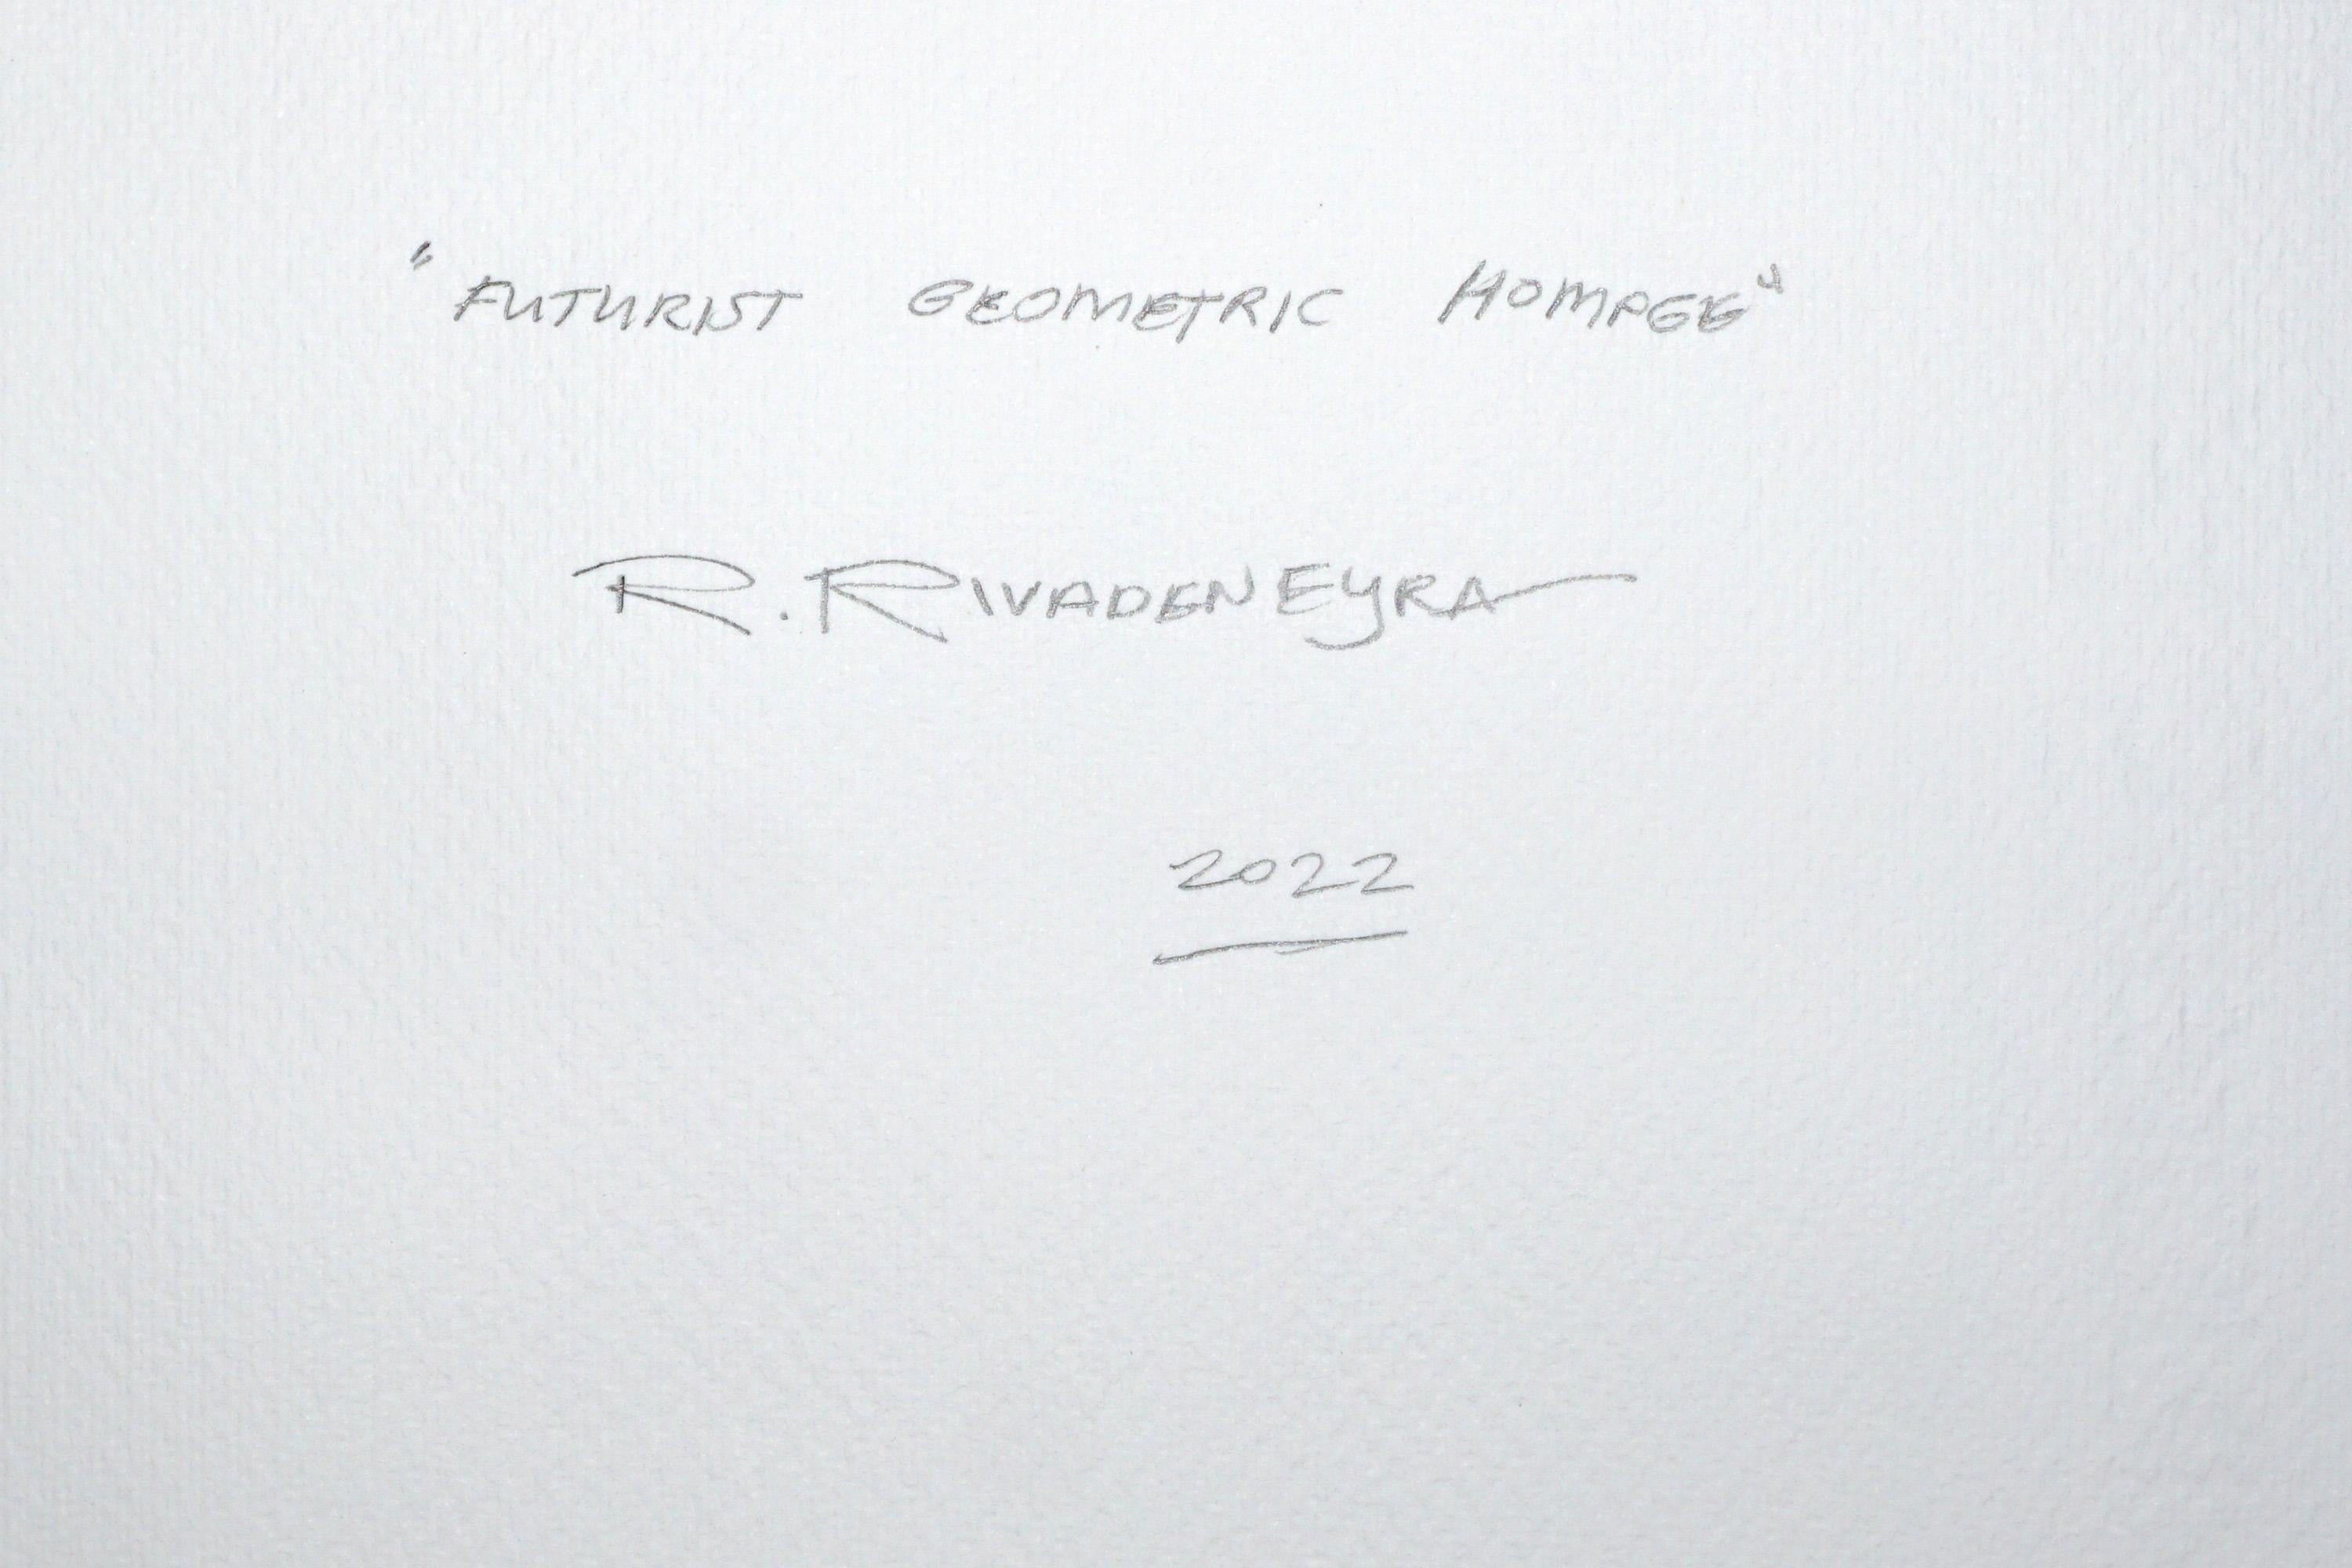 "FUTURIST GEOMETRIC HOMAGE"
R. RIVADENEYRA
2022